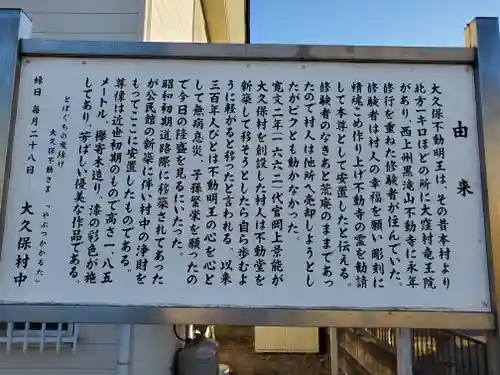 由来
大久保不動明王は、その昔本村より
北方二キロほどの所に大窪村竜王院
があり、西上州黒滝山不動寺に永年
修行を重ねた修験者が住んでいた。
修験者は村人の幸福を願い彫刻に
精魂こめ作り上げ不動寺の霊を勧請
して本尊として安置したと伝える。
修験者のなきあと荒庵のままであっ
たので村人は他所へ売却しようとし
たがビクとも動かなかった。
寛文二年(一六六二)代官岡上景能が
大久保村を創設した村人は不動堂を
新築して移そうとしたら自ら歩むよ
うに軽がると移ったと言われる。以来
三百年人びとは不動明王の心を心と
して無病息災、子孫繁栄を願ったの
で今日の隆盛を見るにいたった。
昭和初期道路際に移築されてあった
が公民館の新築に伴い村中の浄財を
もってここに安置したものである。
尊像は近世初期のもので高さ一、八五
メートル、欅寄木造り、漆の彩色が施
してあり、芳ばしい優美な作品である。
とぼぐちの魔除け
大久保不動さま「やっぷかかるた」
縁日 毎月二十八日
大久保村中